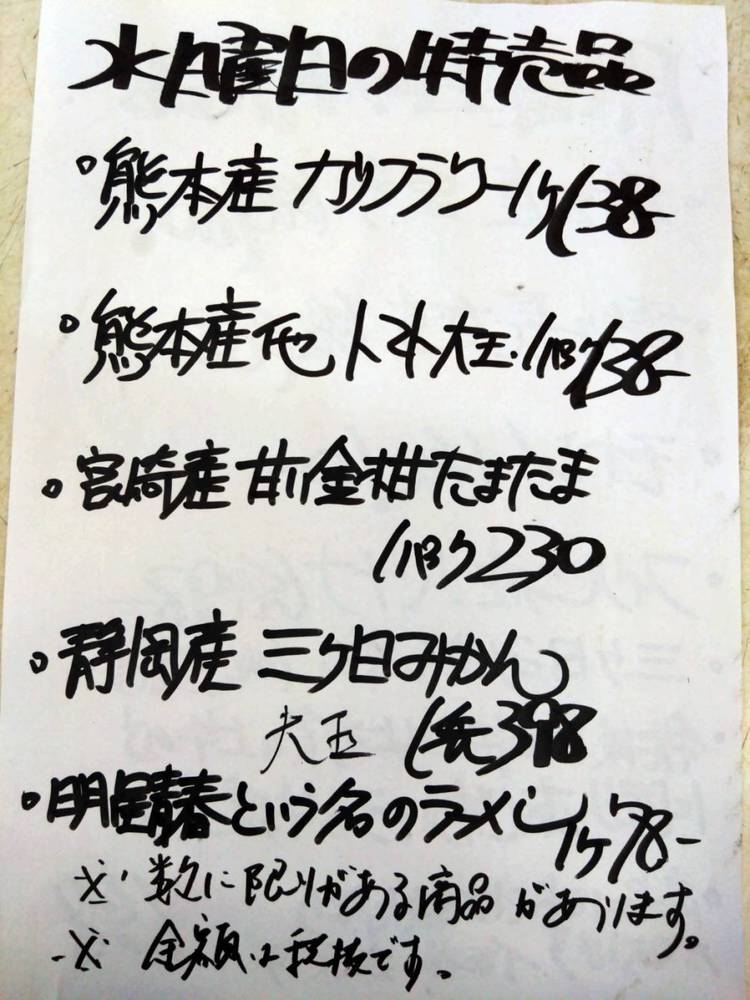 水曜日の特売品
。熊本産 カリフラワー1ケ138-
。熊本産他 トマト大玉.1パック138-
。宮崎産 甘い金柑たまたま
1パック230
。静岡産 三ケ日みかん
大玉 1袋398
。明星青春という名のラーメン1ケ78-
※.数に限りがある商品があります。
※.金額は税抜です。